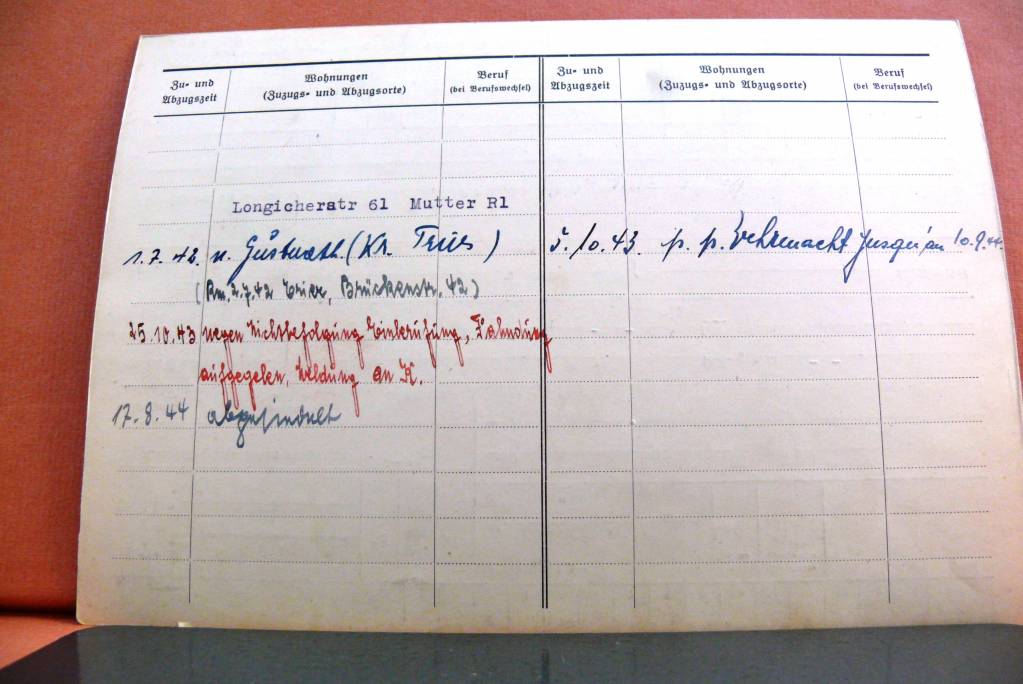 Zu- und Abzugszeit
Wohnungen
(Zuzugs- und Abzugsorte)
Beruf
(bei Berufswechsel)
Zu- und Abzugszeit
Wohnungen
(Zuzugs- und Abzugsorte)
Beruf
(bei Berufswechsel)
Longicherstr 61 Mutter R1
1.7.42. n. (Kr. Trier)
(Rm. 2.7.42 Trier, Brückenstr. 42)
25.10.43 wegen Nichtbefolgung Einberufung, Fahndung
aufgegeben, Meldung an K.
17.8.44
5.10.43. p. p. Wehrmacht jusqu'au 10.9.44.